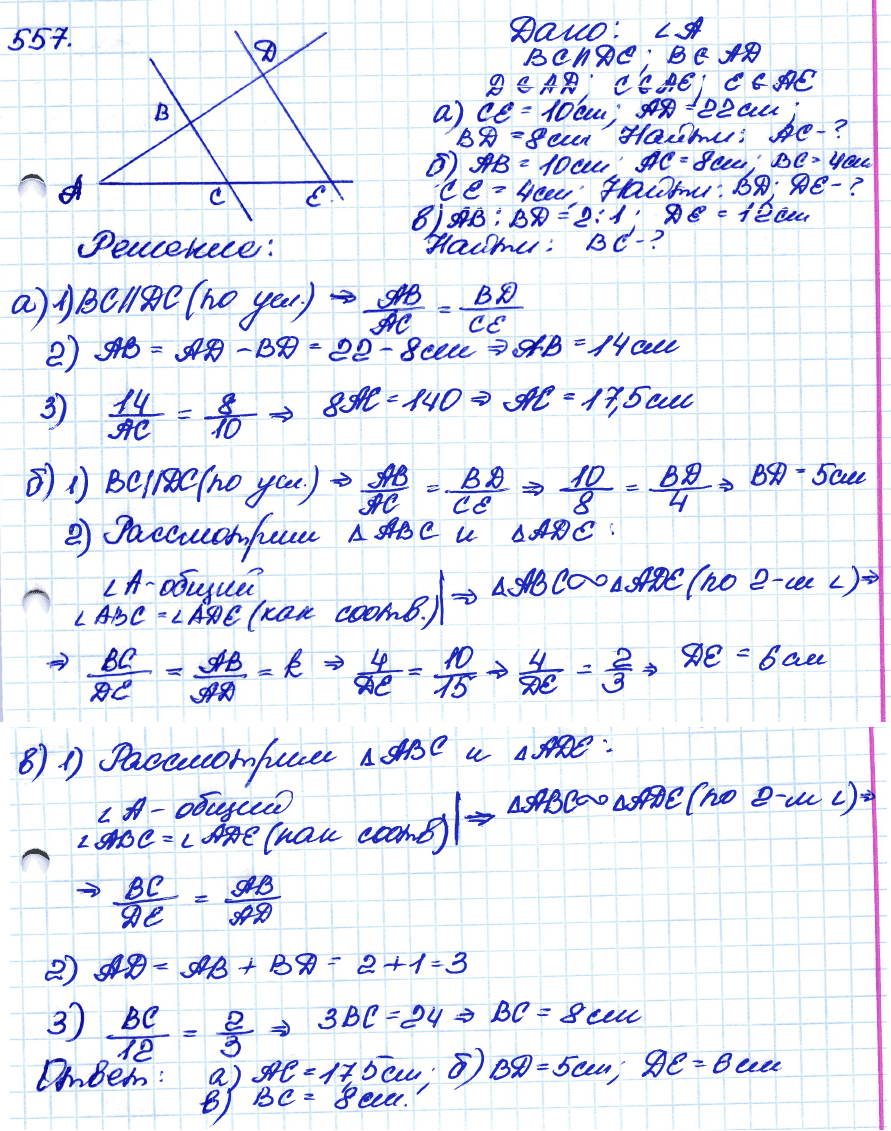 557.
Дано: ∠A
BC∥DE; B∈AD
D∈AD; C∈AE; E∈AE
а) CE = 10см; AD = 22см;
BD = 8см Найти: AC-?
б) AB = 10см; AC = 8см; BC = 4см
CE = 4см; Найти: BD; DE-?
в) AB : BD = 2 : 1; DE = 12см
Найти: BC-?
D
B
A
C
E
Решение:
а) 1) BC∥DC (по усл.) ⇒ AB/AC = BD/CE
2) AB = AD - BD = 22 - 8см ⇒ AB = 14см
3) 14/AC = 8/10 ⇒ 8AC = 140 ⇒ AC = 17,5см
б) 1) BC∥DC (по усл.) ⇒ AB/AC = BD/CE ⇒ 10/8 = BD/4 ⇒ BD = 5см
2) Рассмотрим △ABC и △ADE:
∠A - общий
∠ABC = ∠ADE (как соотв.) | ⇒ △ABC∾△ADE (по 2-м ∠) ⇒
⇒ BC/DE = AB/AD = k ⇒ 4/DE = 10/15 ⇒ 4/DE = 2/3 ⇒ DE = 6см
в) 1) Рассмотрим △ABC и △ADE:
∠A - общий
∠ABC = ∠ADE (как соотв) | ⇒ △ABC∾△ADE (по 2-м ∠) ⇒
⇒ BC/DE = AB/AD
2) AD = AB + BD = 2 + 1 = 3
3) BC/12 = 2/3 ⇒ 3BC = 24 ⇒ BC = 8см
Ответ: а) AC = 17,5см; б) BD = 5см; DE = 6см
в) BC = 8см.